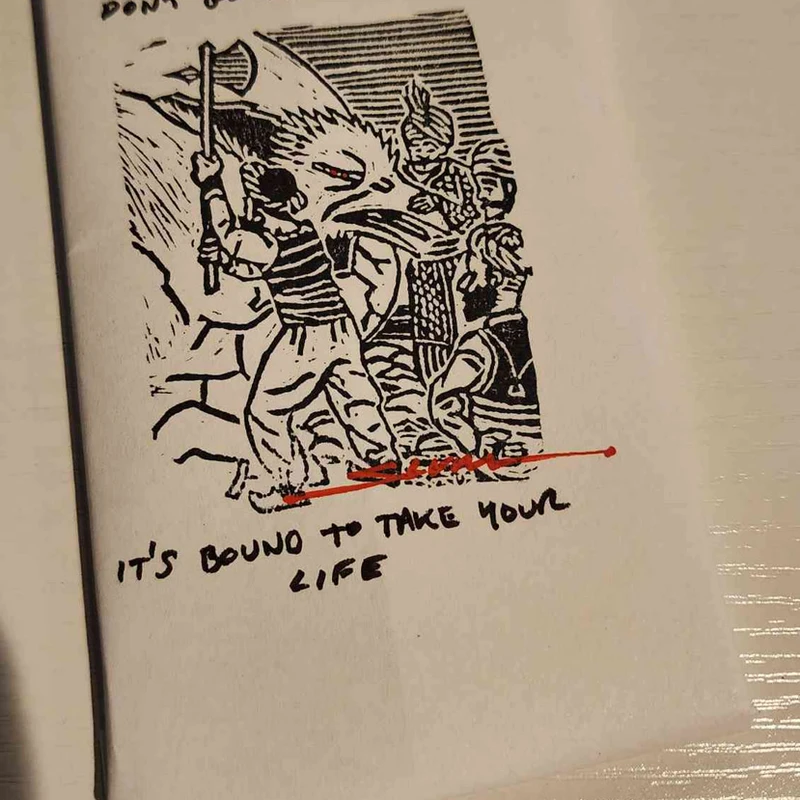 DON'T
IT'S BOUND TO TAKE YOUR
LIFE